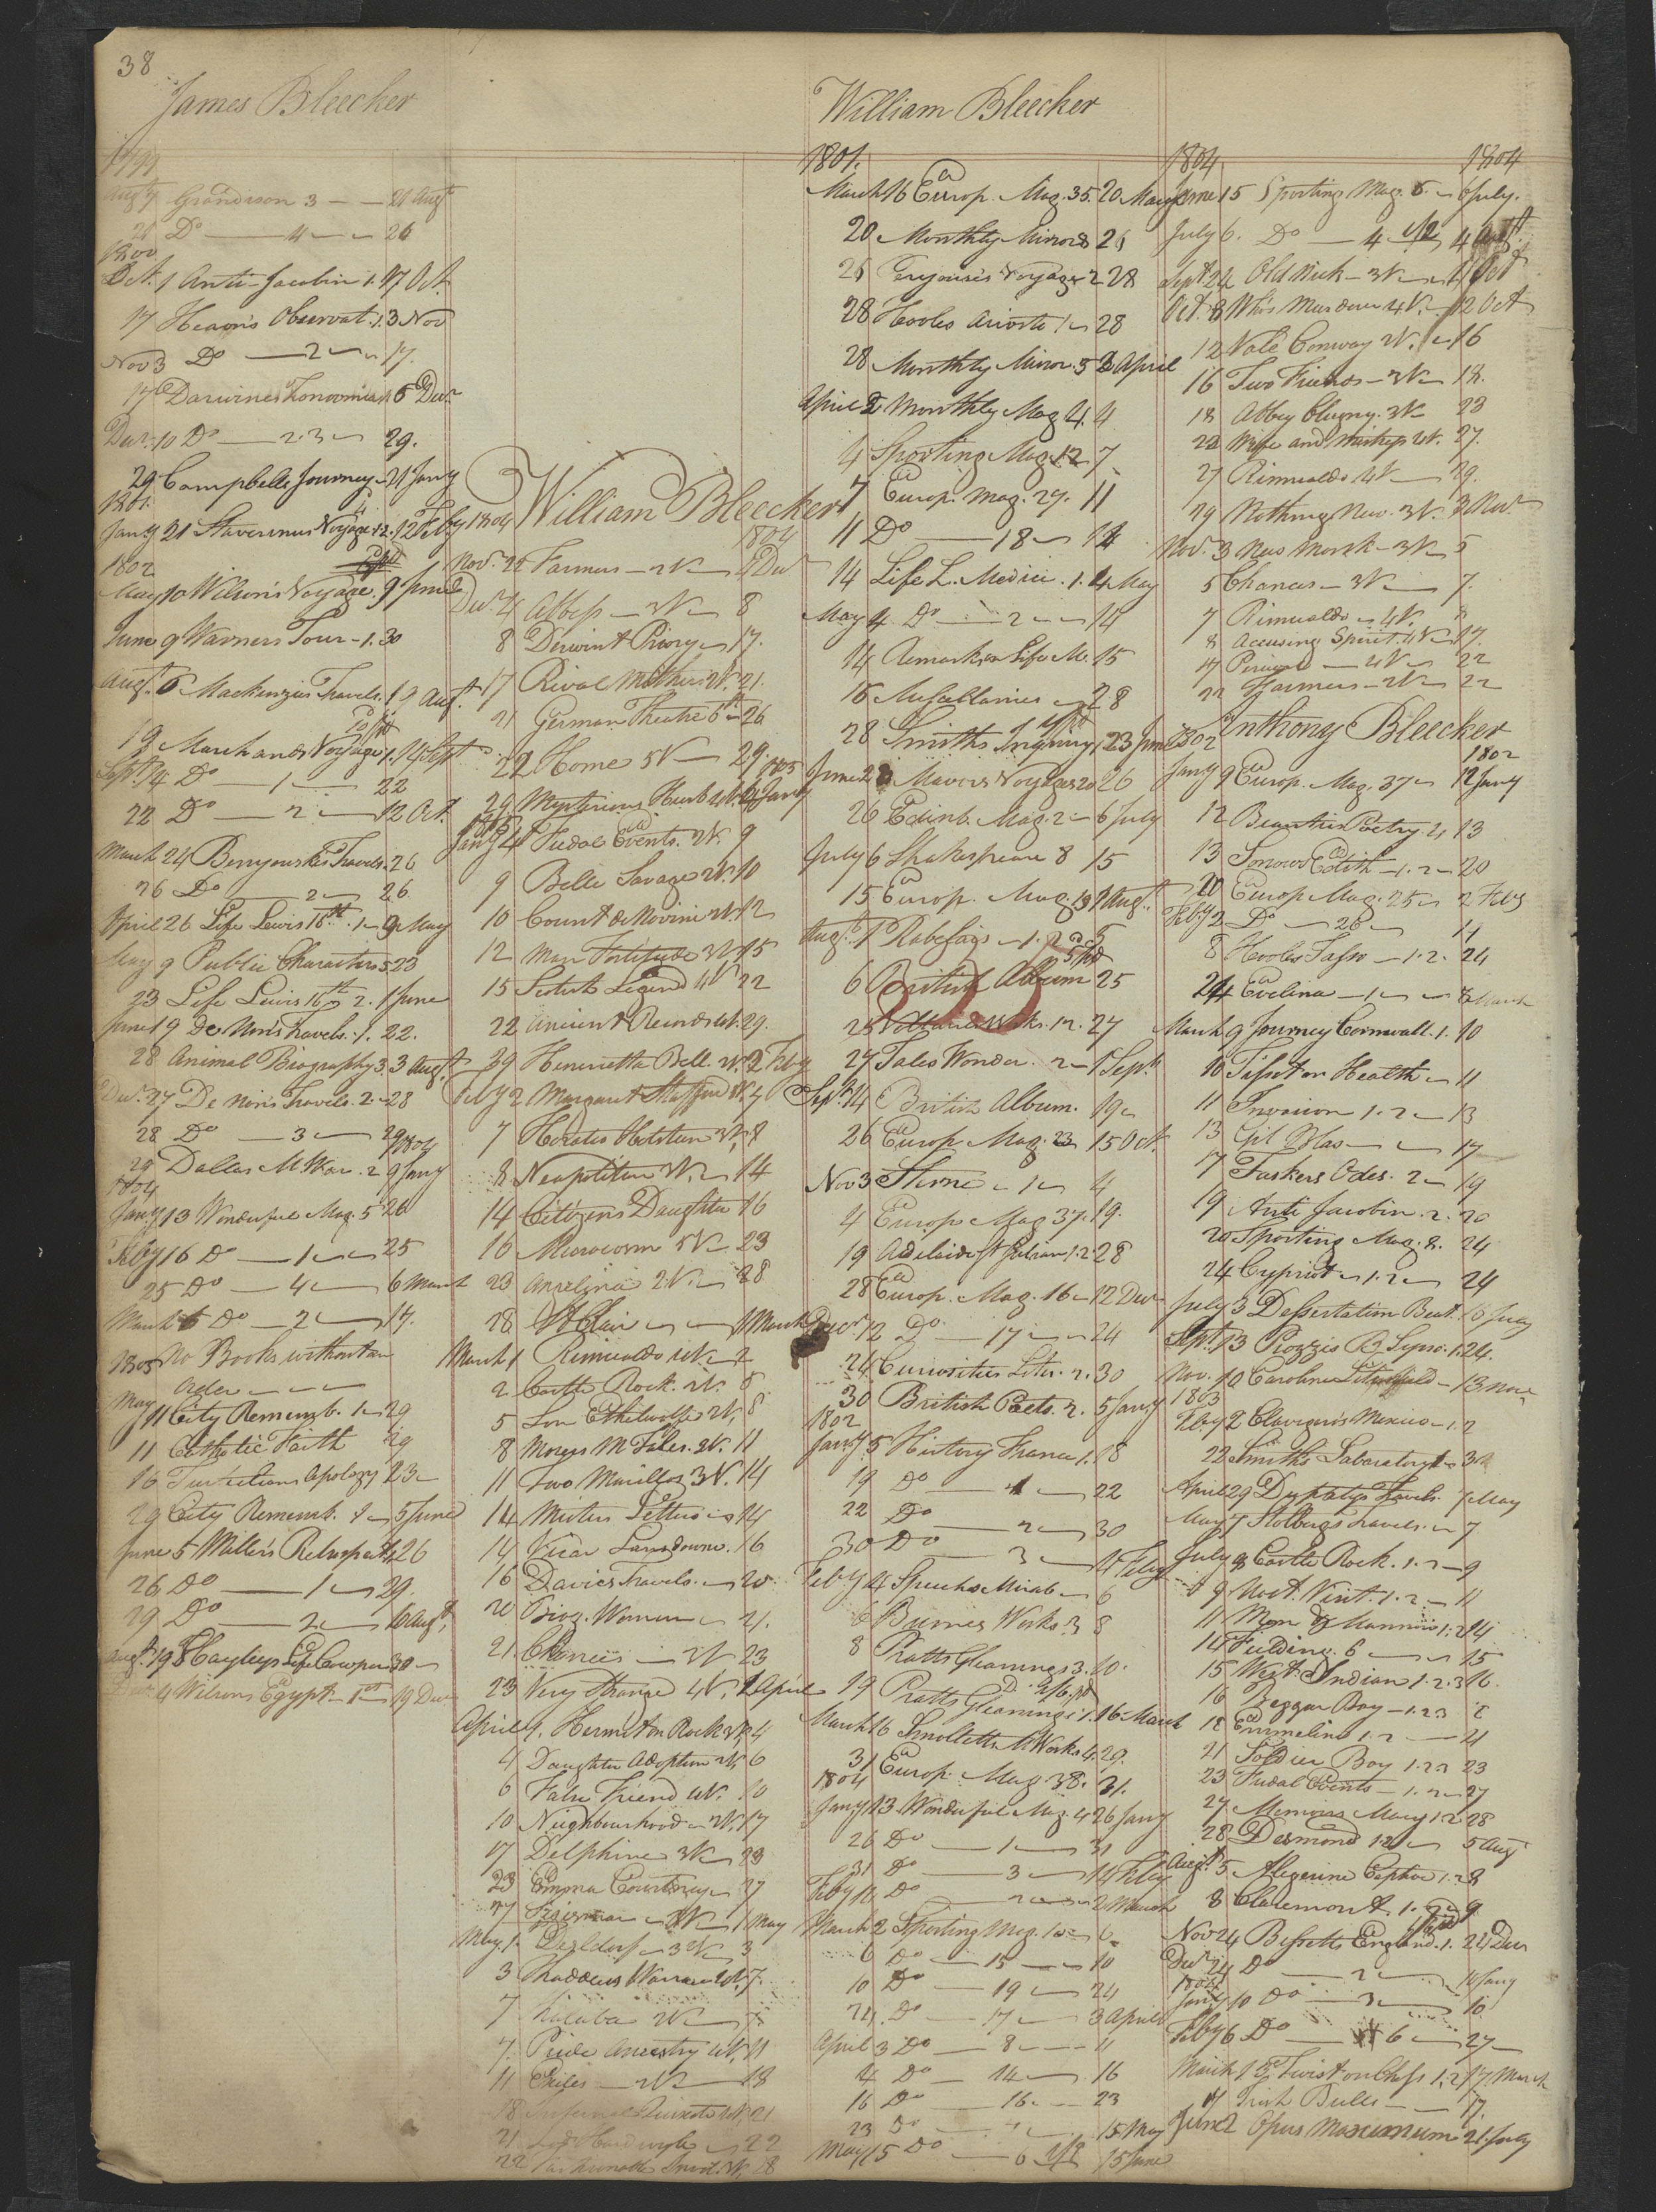 38
James Bleecker
1799
Aug 9 Grandison 3 — 21 Augt
21 Do — 4 — 26
1800
Oct. 1 Anti-Jacobin 1. 17 Oct.
17 Heron's Observat. 1. 3 Nov
Nov 3 Do — 2 — 17.
17 Darwines Zonoomia 1 6 Decr
Decr. 10 Do — 2.3 — 29.
29 Campbells Journey — 21 Jany
1801.
Jany 21 Stavorinus Voyage 1.2. 12 Feby
1802
May 10 Wilson's Voyage. 9 June
June 9 Warners Tour — 1. 30
Augt. 6 Mackenzies Travels. 19 Augt.
19 Marchands Voyage 1. 14 Sept
Sept. 14 Do — 1 — 22
22 Do — 2 — 12 Oct.
March 24 Benyouskis Travels. 26
26 Do — 2 — 26
April 26 Life Lewis 16th. 1 — 9 May
May 9 Public Characters 5 23
23 Life Lewis 16th 2. 1 June
June 19 De Non's Travels. 1. 22.
28 Animal Biography 3. 3 Augt.
Decr. 27 De Non's Travels. 2 — 28
28 Do — 3 — 29
1804
29 Dallas M War. 2 9 Jany
1804
Jany 13 Wonderful Mag. 5 26
Feby 16 Do — 1 — 25
25 Do — 4 — 6 March
March 6 Do — 2 — 17.
1805 No Books without an
Order — — —
May 11 City Rememb. 1 — 29
11 Catholic Faith 29
16 Turtelians Apology 23 —
29 City Rememb. 2 — 5 June
June 5 Miller's Retrospect 1, 26
26 Do — 1 — 29.
29 Do — 2 — 16 Augt.
Augt. 19 Hayleys Life Cowper 30 —
4 Wilsons Egypt — 1st 19 Decr
1804 William Bleecker
1804
Nov. 22 Farmers — 2 V — 4 Decr
Decr. 4 Abbess — 3V — 8
8 Derwent Priory — 17.
17 Rival Mothers 2V. 21.
21 German Theatre 6th — 26
22 Home 5V — 29.
1805
29 Mysterious Husb 4V. 4 Jany
1805
Jany 4 Feudal Events. 2V. 9
9 Belle Savage 2V. 10
10 Count de Novini 2V. 12
12 Man Fortitude 3V. 15
15 Scotch Legend 4V 22
22 Ancient Records 4V. 29.
29 Henrietta Bell. 2V. 2 Feby
Feby 2 Margaret Strafford V. 7
7 Horatio Holstein 3V. 8
8 Neapolitan 3V. — 14
14 Citizens Daughter 16
16 Microcosm 5V — 23
23 Angelina 2V. — 28
28 St Clair — — 1 March
March 1 Rimualdo 4V. — 2
2 Castle Rock. 2V. 5
5 Son Ethelwolfe 2V, 8
8 Moses M Tales. 2V. 11
11 Two Marillos 3V. 14
14 Misters Letters — 14
14 Vicar Lansdowne. 16
16 Davies Travels. — 20
20 Biog. Women — 21.
21. Chances — 3V 23
23 Very Strange 4V. 1 April
April 1. Hermit on Rock 3V, 4
4 Daughter Adoption 2V, 6
6 False Friend 4V. 10
10 Neighbourhood — 2V, 17
17 Delphine 3V — 23
23 Emma Courtney — 27
27 — 3V — 1 May
May 1. — 3V — 3
3 Thaddeus Warsaw 4V, 7.
7 2V — 7
7. Pride Ancestry 4V, 11
11 Exiles — 2V — 18
18 Infernal Quixote 4V, 21
21 — 22
22 28
William Bleecker
1801.
March 16 Europ. Mag. 35. 20 March
20 Monthly Mirror 8 26
26 Perjouse's Voyage 2 28
28 Hooles Ariosto 1 — 28
28 Monthly Mirror. 5 2 April
April 2 Monthly Mag 4. 4
4 Sporting Mag. 12 7
7 Europ. Mag. 27. 11
11 Do — 18 — 14
14 Life L. Medici. 1. 4 May
May 4 Do — 2 — 14
14 Remarks on Life M. 15
15 Miscellanies — 28
28 Smiths Inquiry 1 23 June
June 23 Mavors Voyages 20 26
26 Edinb. Mag. 2 — 6 July
July 6 Shakespeare 8 15
15 Europ. Mag. 19 1 Augt.
Augt. 1 Rabelais — 1.2 6
6 British Album 25
25 Voltaires Wks. 12. 27
27 Tales Wonder. 2 — 1 Sept
Sept. 14 British Album. 19 —
26 Europ. Mag. 23 15 Oct.
Nov 3 Sterne — 1 — 4
4 Europ Mag 37. 19.
19 Adelaide St Julian 1.2 28
28 Europ. Mag. 16 — 12 Decr
Decr. 12 Do — 17 — 24
24 Curiosities Liter. 2. 30
30 British Poets. 2. 5 Jany
1802
Jany. 5 History France 1. 18
19 Do — 1 — 22
22 Do — 2 — 30
30 Do — 3 — 4 Feby
Feby 4 Speeches Mirab — 6
6 Burnes Works. 3 8
8 Pratts Gleanings 3. 10.
19 Pratts Gleanings 1. 16 March
March 16 Smolletts M Works 4. 29.
31 Europ. Mag. 38. 31.
1804
Jany 13 Wonderful Mag. 4 26 Jany
26 Do — 1 — 31
31 Do — 3 — 14 Feby
Feby 14 Do — 2 — 2 March
March 2 Sporting Mag. 10 — 6
6 Do — 15 — 10
10 Do — 19 — 24
24. Do — 17 — 3 April
April 3 Do — 8 — 4
4 Do — 14 — 16
16 Do — 16 — 23
23 Do — — 15 May
May 15 Do — 6 1/2 15 June
1804 1804
June 15 Sporting Mag. 5. — 6 July.
July 6. Do — 4 1/2 4 Augt.
Sept 24 Old Nick — 3V — 4 Oct
Oct. 8 Who's Murderer 4V. — 12 Oct
12 Vale Conway 2V. — 16
16 Two Friends — 3V — 18.
18 Abbey Clugny. 3V — 23
22 Wife and Mistress 4V. 27.
27 Rimualdo 4V — 29.
29 Nothing New. 3V. 3 Novr
Nov. 3 New Monk — 3V — 5
5 Chances — 3V — 7.
7 Rimualdo — 4V. 8
8 Accusing Spirit 4V — 17.
17 Percival — 4V — 22
22 Farmers — 2V — 22
1802 Anthony Bleecker
1802
Jany 9 Europ. Mag. 37 — 12 Jany
12 Beauties Poetry 2, 13
13 Sorrows Edith — 1.2 — 20
20 Europ Mag. 25 — 2 Feby
Feby 2 Do — 26 — 4
8 Hooles Tasso — 1.2. 24
24 Evelina — 1 — — 8 March
March 9 Journey Cornwall. 1. 10
10 Tissot on Health — 11
11 Invasion 1.2 — 13
13 Gil Blas — — 17
17 Taskers Odes. 2 — 19
19 Anti Jacobin. 2. 20
20 Sporting Mag. 8. 24
24 Cypriot — 1.2 — 24
July 3 Dessertation Beat. 10 July
Sept. 13 Piozzis B Syno. 1. 24.
Nov. 10 Caroline Litchfield — 13 Nov
1803
Feby 2 Clavigero's Mexico — 1. 2
22 Smiths Laboratory 1 —
April 29 Dupatys Travels. 7 May
May 7 Stolbergs Travels. — 7
July 8 Castle Rock. 1.2 — 9
9 Noct. Visit. 1.2 — 11
11 Men & Manners 1.2 14
14 Fielding. 6 — — 15
15 West Indian 1.2.3 16.
16 Beggar Boy — 1.2.3 18
18 Emmeline 1.2 — 21
21 Soldier Boy 1.2.3 23
23 Feudal Events — 1.2 — 27
27 Memoirs Mary 1.2 28
28 Desmond 1.2 — 5 Aug
Augt. 5 Algerine Captive 1.2 8
8 Claremont 1.2 — 9
Nov 24 Bissetts England. 1. 24 Decr
Decr 24 Do — 2 — 10 Jany
1804
Jany 10 Do — 3 — 10
Feby 6 Do — 6 — 27 —
March 15 Twist on Chess 1.2 17 March
17 Irish Bulls — — 17
June 2 Opus Maximum 21 July